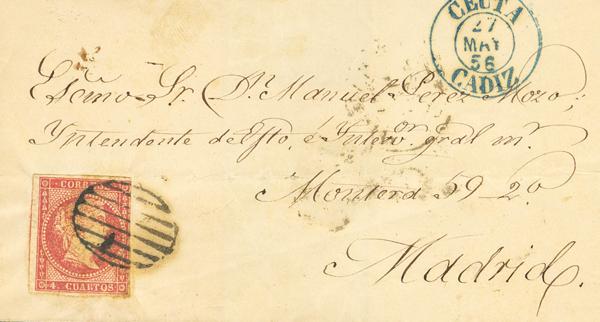 CEUTA
27
MAY
56
CADIZ
Escmo Sr. Dn. Manuel Perez Mozo,
Yntendente de Ejto, é Interor. gral mr.
Montera 59-2o.
Madrid.
CORRE
4. CUARTOS